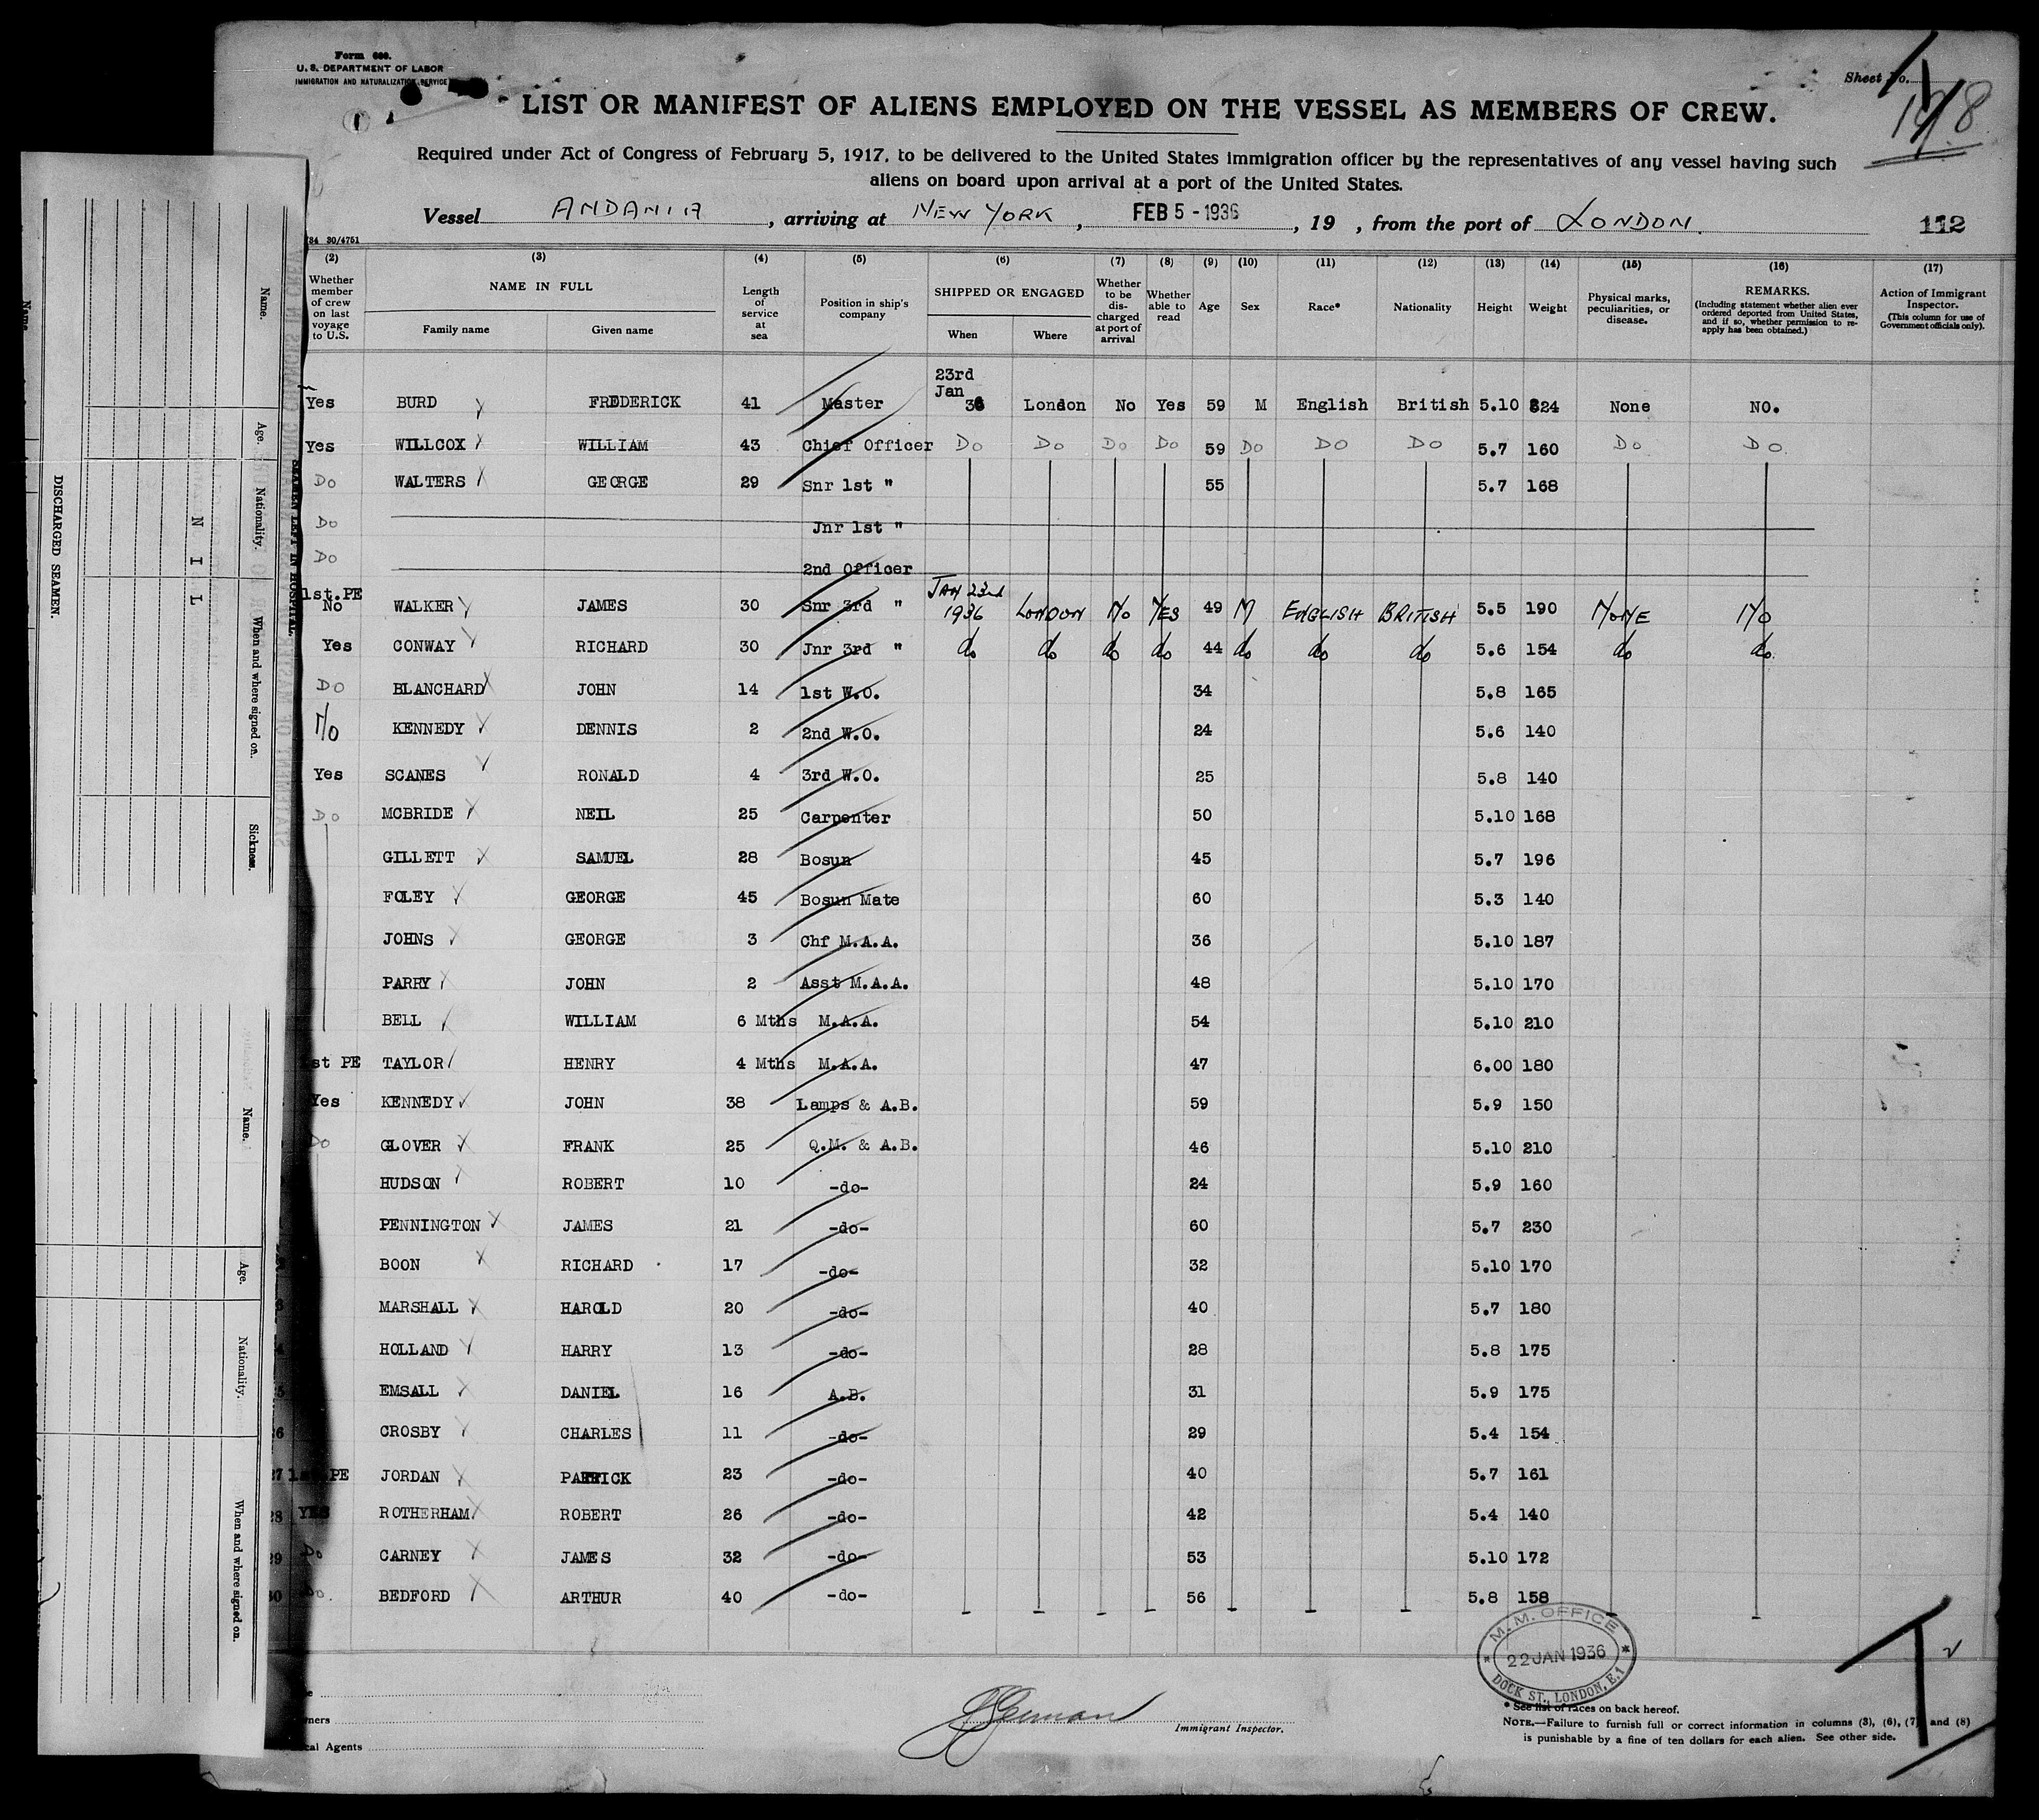 Form 680.
U. S. DEPARTMENT OF LABOR
IMMIGRATION AND NATURALIZATION SERVICE
Sheet No.
LIST OR MANIFEST OF ALIENS EMPLOYED ON THE VESSEL AS MEMBERS OF CREW.
Required under Act of Congress of February 5, 1917, to be delivered to the United States immigration officer by the representatives of any vessel having such
aliens on board upon arrival at a port of the United States.
Vessel ANDANIA, arriving at NEW YORK, FEB 5 - 1936, 19 , from the port of LONDON. 112
30/4751
(2) (3) (4) (5) (6) (7) (8) (9) (10) (11) (12) (13) (14) (15) (16) (17)
Whether member of crew on last voyage to U.S. NAME IN FULL Family name Given name Length of service at sea Position in ship's company SHIPPED OR ENGAGED When Where Whether to be discharged at port of arrival Whether able to read Age Sex Race* Nationality Height Weight Physical marks, peculiarities, or disease. REMARKS. (Including statement whether alien ever ordered deported from United States, and if so, whether permission to re-apply has been obtained.) Action of Immigrant Inspector. (This column for use of Government officials only).
23rd
Jan
Yes BURD FREDERICK 41 Master 36 London No Yes 59 M English British 5.10 224 None NO.
Yes WILLCOX WILLIAM 43 Chief Officer Do Do Do Do 59 Do Do Do 5.7 160 Do Do
Do WALTERS GEORGE 29 Snr 1st " 55 5.7 168
Do Jnr 1st "
Do 2nd Officer
1st. PE JAN 23rd
No WALKER JAMES 30 Snr 3rd " 1936 LONDON No YES 49 M ENGLISH BRITISH 5.5 190 NONE NO
Yes CONWAY RICHARD 30 Jnr 3rd " do do do do 44 do do do 5.6 154 do do
Do BLANCHARD JOHN 14 1st W.O. 34 5.8 165
No KENNEDY DENNIS 2 2nd W.O. 24 5.6 140
Yes SCANES RONALD 4 3rd W.O. 25 5.8 140
Do MCBRIDE NEIL 25 Carpenter 50 5.10 168
GILLETT SAMUEL 28 Bosun 45 5.7 196
FOLEY GEORGE 45 Bosun Mate 60 5.3 140
JOHNS GEORGE 3 Chf M.A.A. 36 5.10 187
PARRY JOHN 2 Asst M.A.A. 48 5.10 170
BELL WILLIAM 6 Mths M.A.A. 54 5.10 210
1st PE TAYLOR HENRY 4 Mths M.A.A. 47 6.00 180
Yes KENNEDY JOHN 38 Lamps & A.B. 59 5.9 150
Do GLOVER FRANK 25 Q.M. & A.B. 46 5.10 210
HUDSON ROBERT 10 -do- 24 5.9 160
PENNINGTON JAMES 21 -do- 60 5.7 230
BOON RICHARD 17 -do- 32 5.10 170
MARSHALL HAROLD 20 -do- 40 5.7 180
HOLLAND HARRY 13 -do- 28 5.8 175
EMSALL DANIEL 16 A.B. 31 5.9 175
CROSBY CHARLES 11 -do- 29 5.4 154
27 1st.PE JORDAN PATRICK 23 -do- 40 5.7 161
28 YES ROTHERHAM ROBERT 26 -do- 42 5.4 140
29 Do CARNEY JAMES 32 -do- 53 5.10 172
30 Do. BEDFORD ARTHUR 40 -do- 56 5.8 158
M. M. OFFICE
22 JAN 1936
DOCK ST., LONDON, E.1
Immigrant Inspector.
* See list of races on back hereof.
NOTE.—Failure to furnish full or correct information in columns (3), (6), (7) and (8)
is punishable by a fine of ten dollars for each alien. See other side.
Agents
DISCHARGED SEAMEN.
NIL
Name.
Age.
Nationality.
When and where signed on.
Sickness.
SEAMEN LEFT IN HOSPITAL
Name.
Age.
Nationality.
When and where signed on.